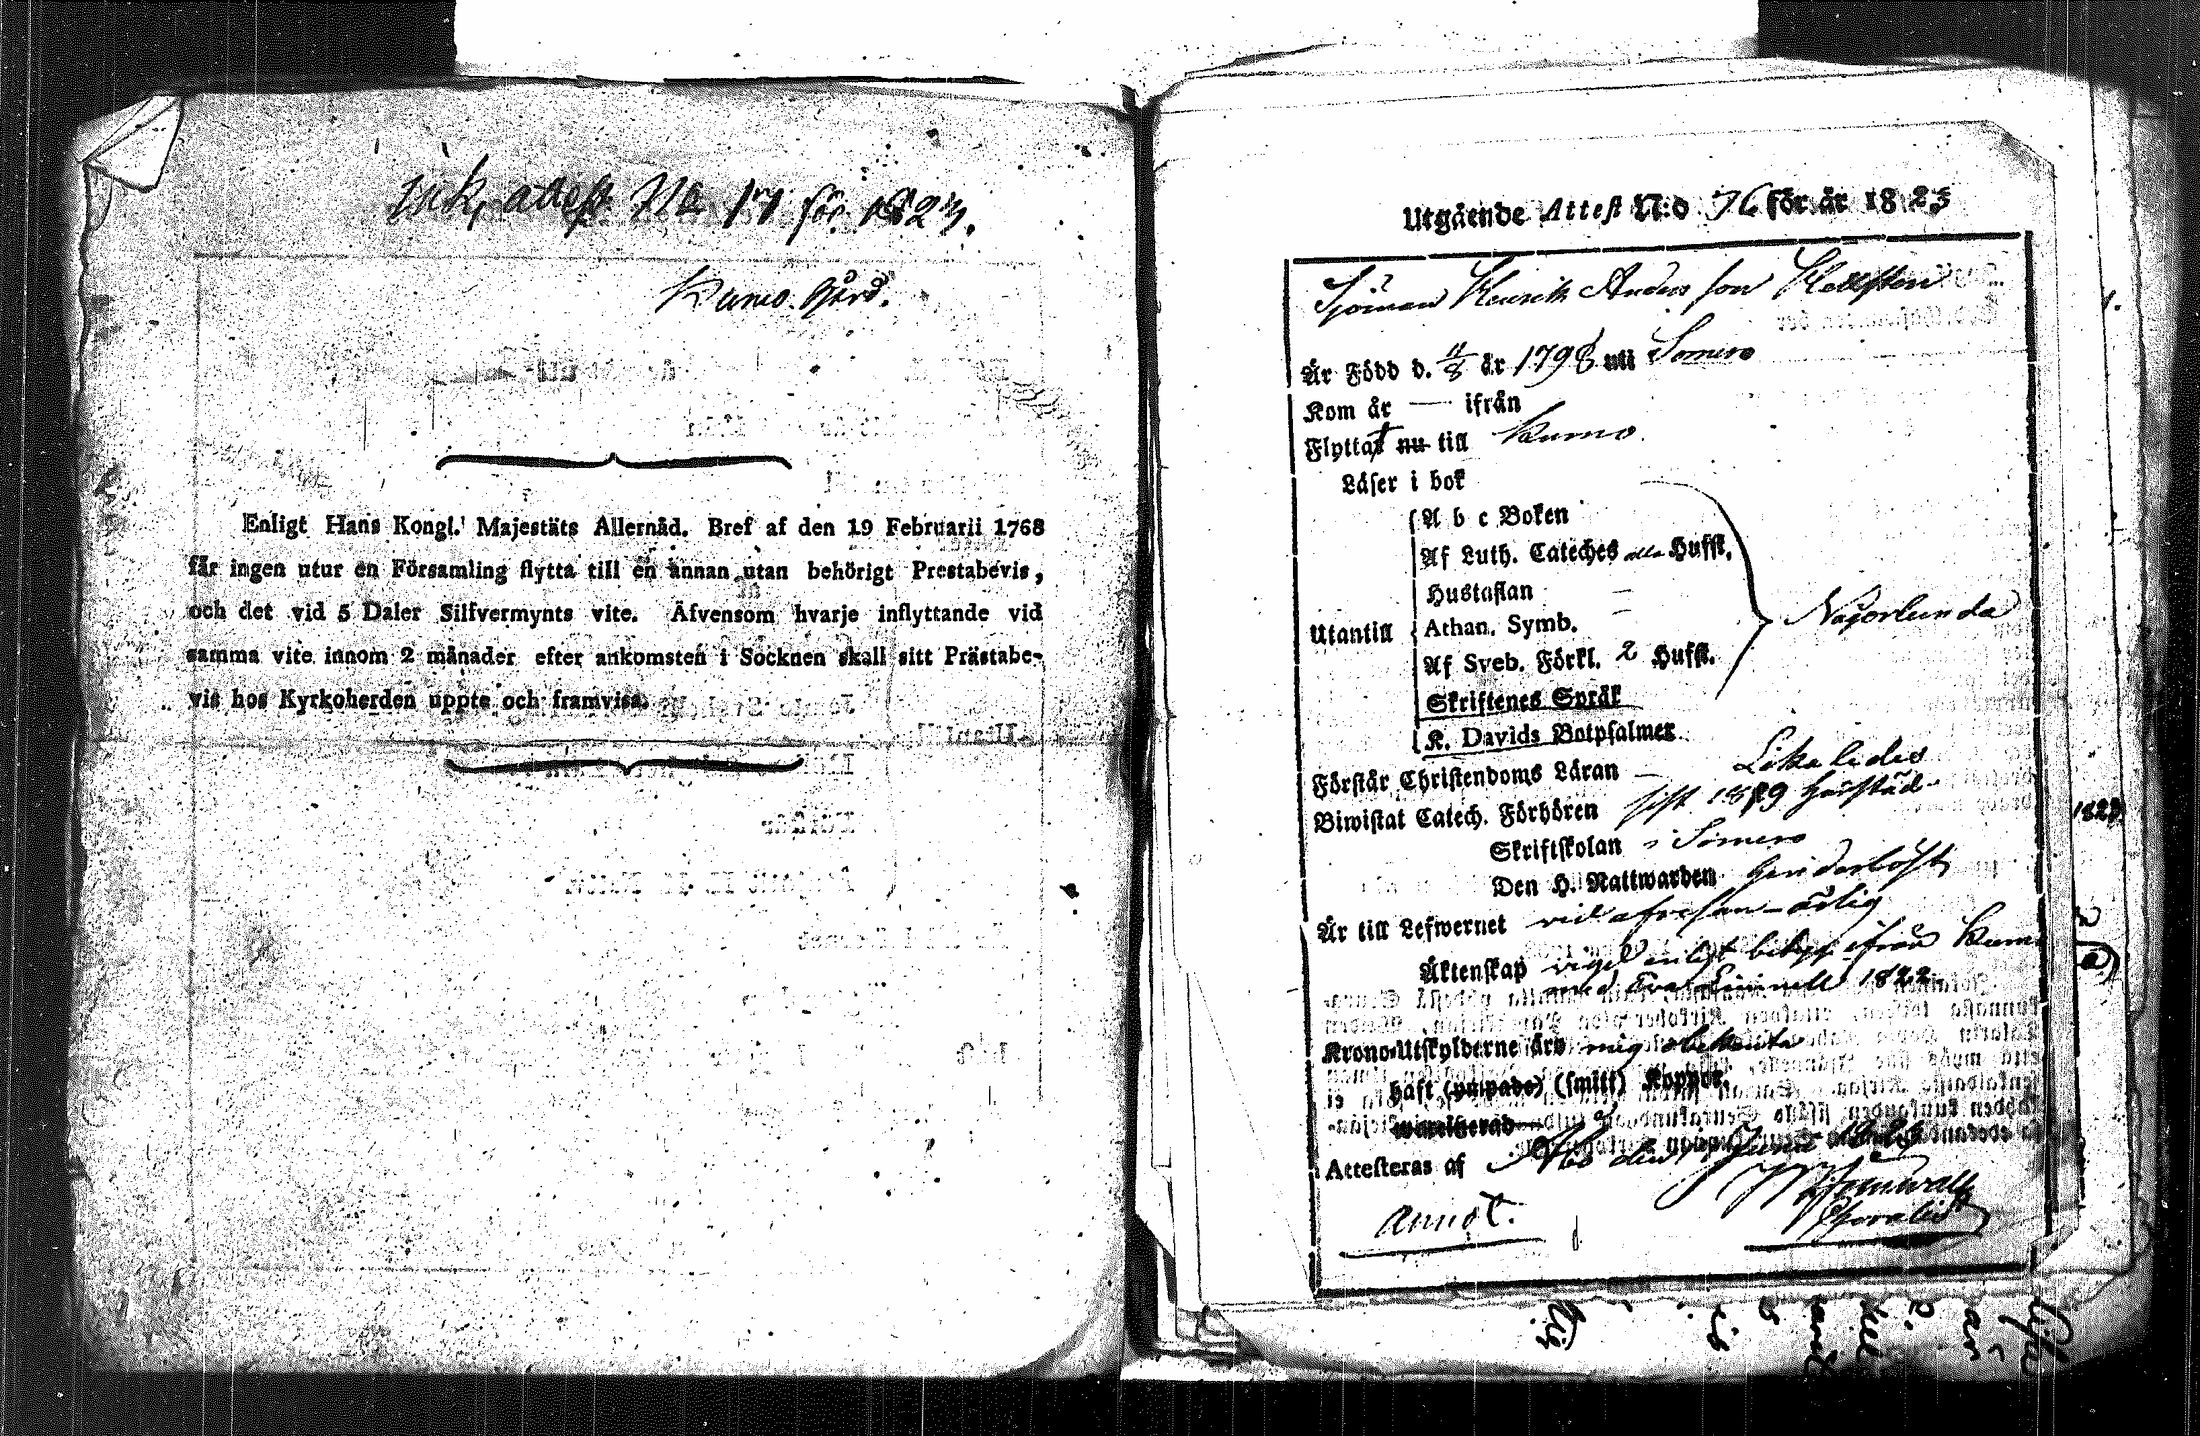 Ink. attest No 17 för 1823.
Kumo Gård.
Enligt Hans Kongl. Majestäts Allernåd. Bref af den 19 Februarii 1768
får ingen utur en Församling flytta till en annan utan behörigt Prestabevis,
och det vid 5 Daler Silfvermynts vite. Äfvensom hvarje inflyttande vid
samma vite innom 2 månader efter ankomsten i Socknen skall sitt Prästabe-
vis hos Kyrkoherden uppte och framvisa.
Utgående Attest N:o 76 för år 1823
Sjöman Henrik Anders son
Är Född d. 11/8 år 1798 uti Somero
Kom år — ifrån
Flyttat nu till Kumo
Läser i bok
A b c Boken
Af Luth. Cateches alla Hufst.
Hustaflan
Utantill
Athan. Symb.
Af Sveb. Förkl. 2 Hufst.
Skriftenes Språk
K. Davids Botpsalmer
Någorlunda
Förstår Christendoms Läran — Likaledes
Biwistat Catech. Förhören sist 1819 härstäd
Skriftskolan i Somero
Den H. Nattwarden
Är till Lefwernet vid afresan ärlig
Äktenskap vigd enligt betyg ifrån Kumo
med Eva 1822
Krono-Utskylderne äro mig obekanta
haft (ympade) (smitt) Koppor.
Attesteras af Åbo den Junii 1823
Annot.
1823